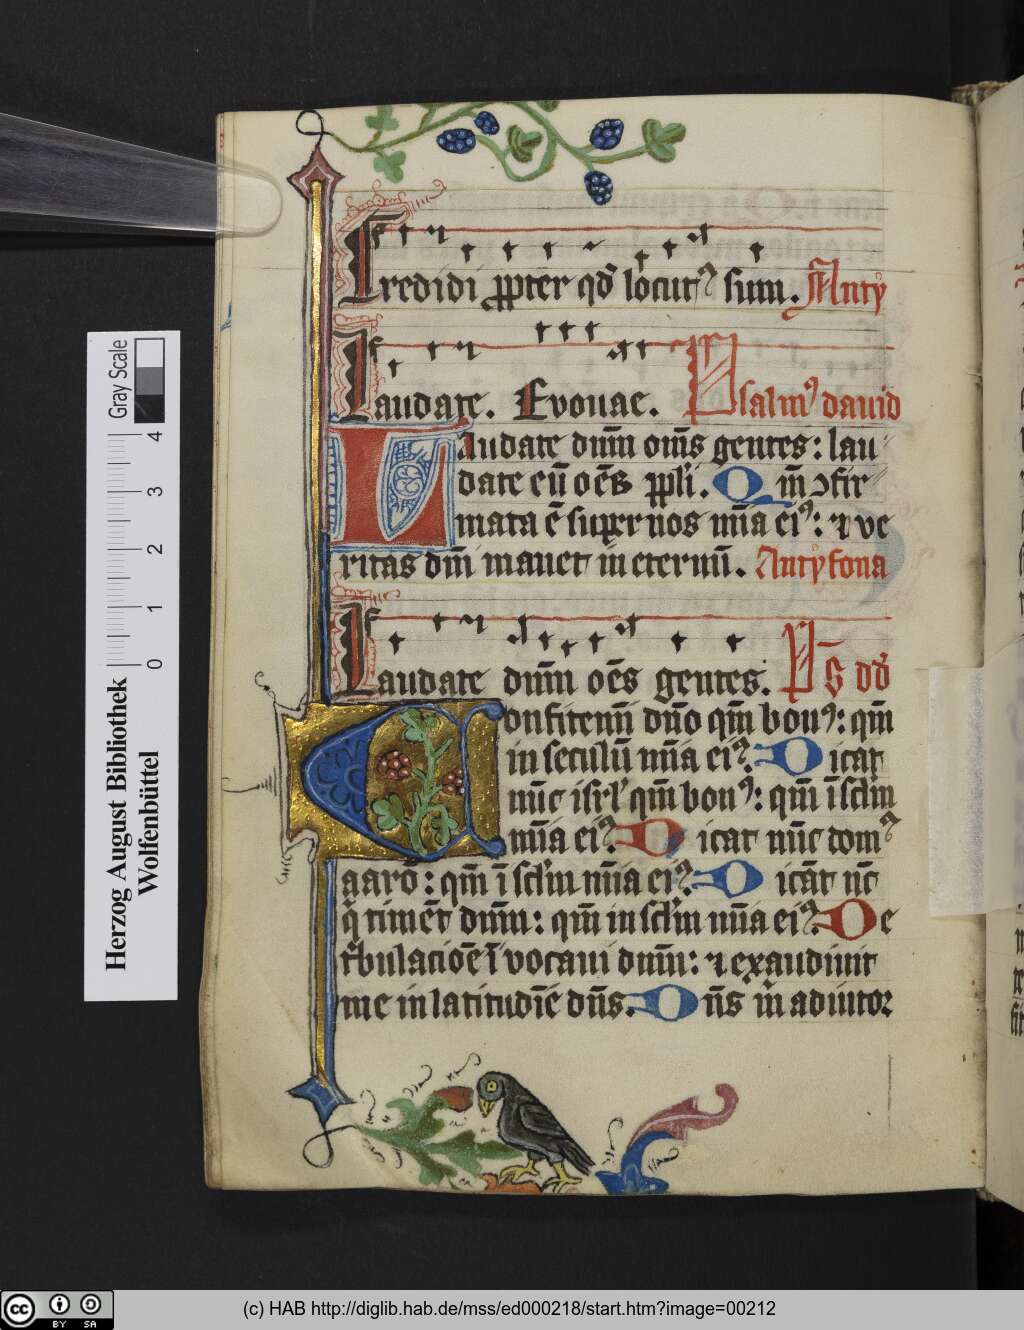 Credidi ꝓpter qd̉ locutꝰ sum. Antyᷣ
Laudate. Evouae. Psalmꝰ dauid
Laudate dnm̄ om̄s gentes: lau
date eū oēs ppli. Qm̄ ↄfir
mata ē super nos mīa eiꝰ: ⁊ ve
ritas dn̄i manet in eternū. Antyfona
Laudate dnm̄ oēs gentes. Ps dd̉
Confitemī dn̄o qm̄ bonꝰ: qm̄
in seculū mīa eiꝰ. Dicat
nūc isrl' qm̄ bonꝰ: qm̄ ī sclm̄
mīa eiꝰ. Dicat nūc domꝰ
aaro: qm̄ ī sclm̄ mīa eiꝰ. Dicāt nc̄
q̄ timēt dnm̄: qm̄ in sclm̄ mīa eiꝰ. De
tˈbulacioē ī vocaui dnm̄: ⁊ exaudiuit
me in latitudīe dn̄s. Dn̄s mˈ adiutor
Gray Scale
4
3
2
1
0
Herzog August Bibliothek
Wolfenbüttel
cc BY SA
(c) HAB http://diglib.hab.de/mss/ed000218/start.htm?image=00212